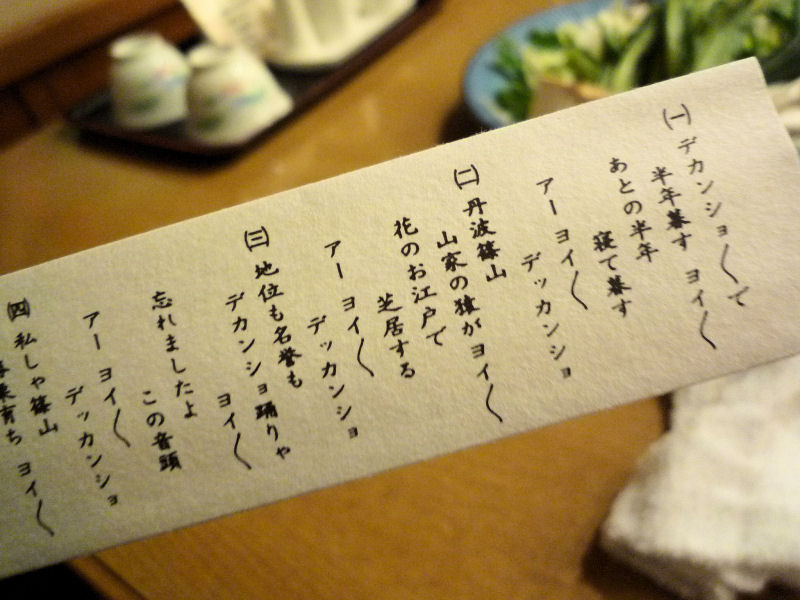 ㈠ デカンショ〱で
半年暮す ヨイ〱
あとの半年
寝て暮す
アー ヨイ〱
デッカンショ
㈡ 丹波篠山
山家の猿が ヨイ〱
花のお江戸で
芝居する
アー ヨイ〱
デッカンショ
㈢ 地位も名誉も
デカンショ踊りゃ
ヨイ〱
忘れましたよ
この音頭
アー ヨイ〱
デッカンショ
㈣ 私しゃ篠山
栗育ち ヨイ〱